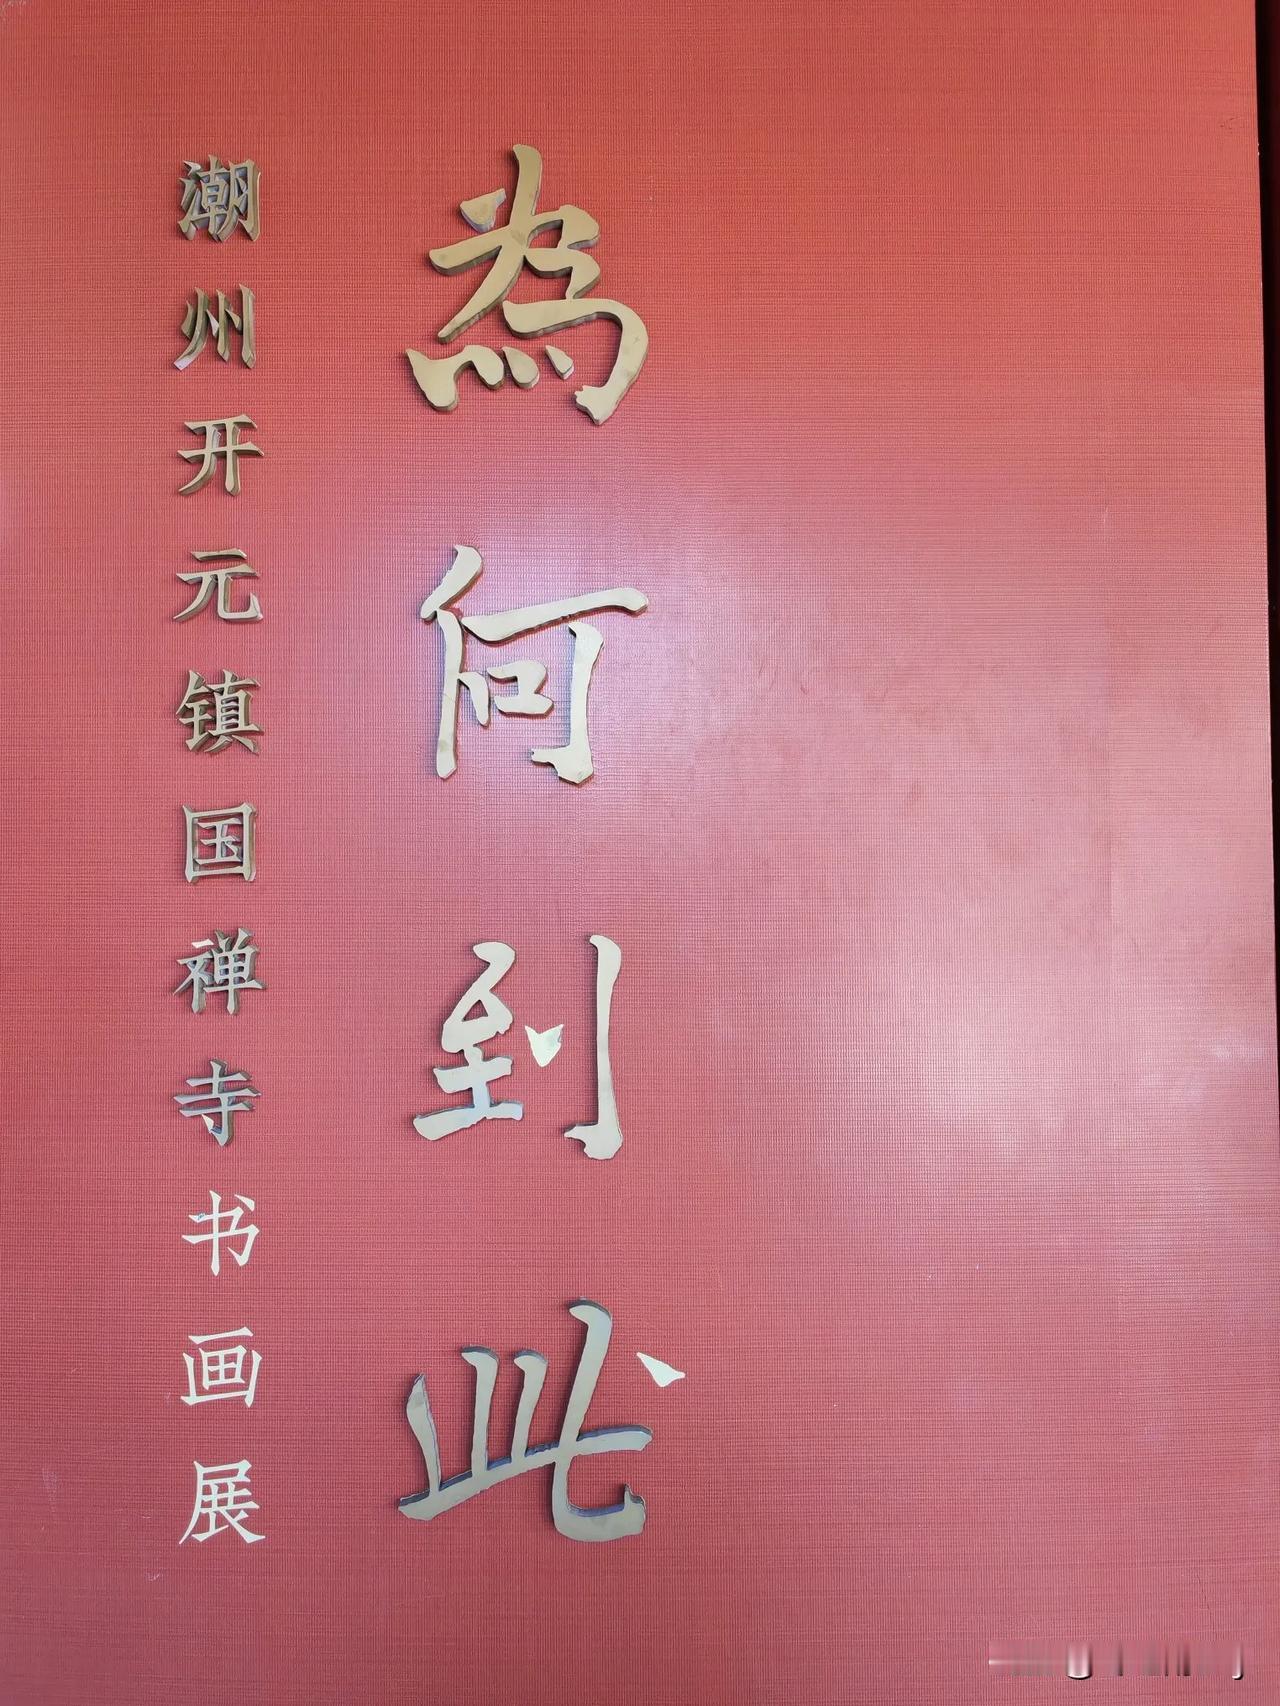 為何到此
潮州开元镇国禅寺书画展